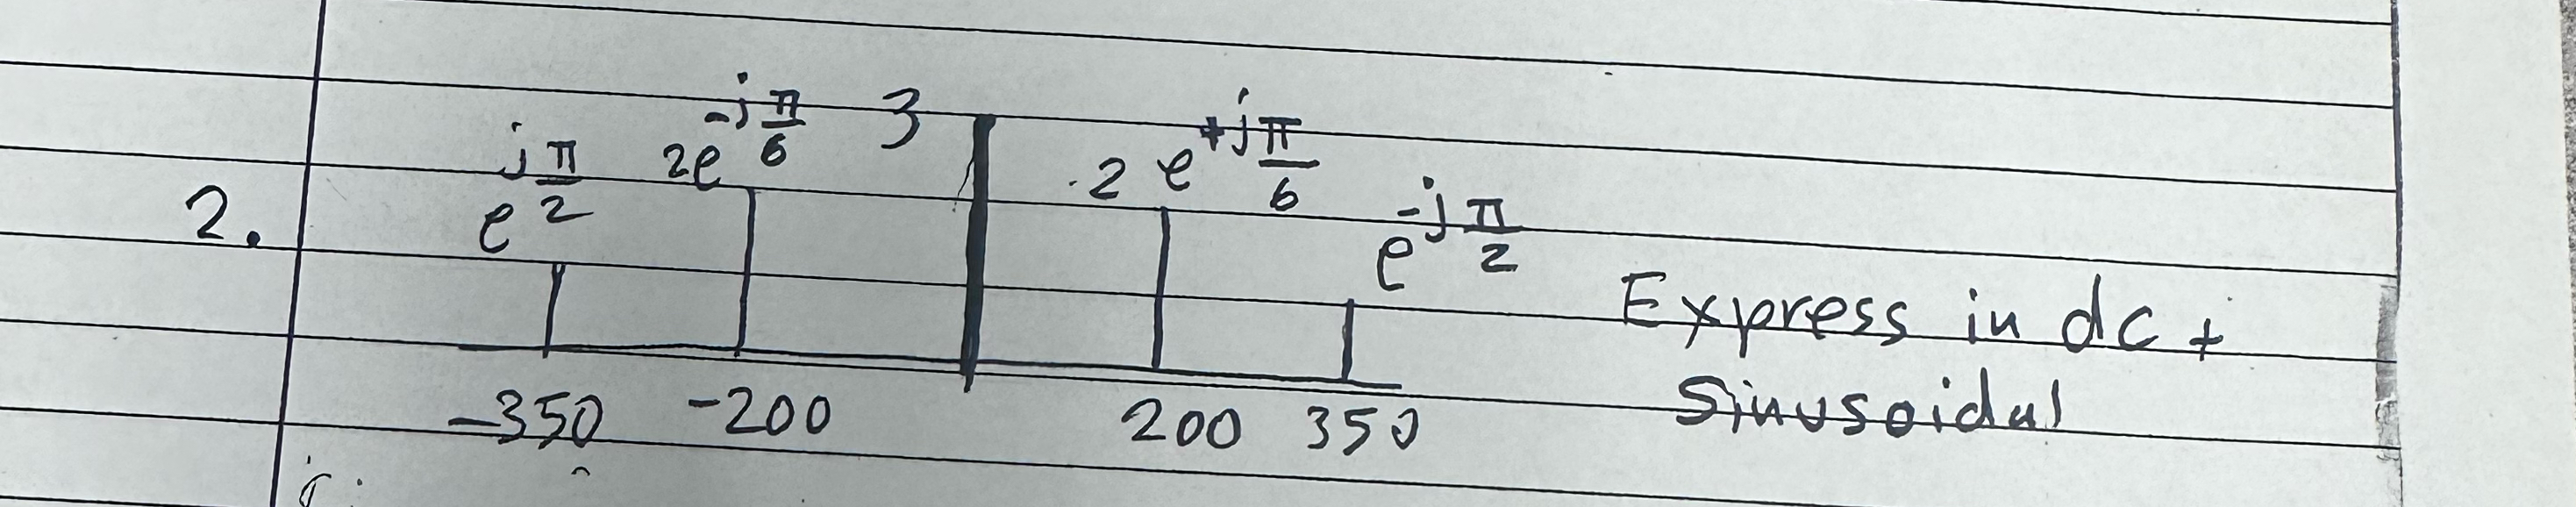 2. e^{j\frac{π}{2}} 2e^{-j\frac{π}{6}} 3 2e^{+j\frac{π}{6}} e^{-j\frac{π}{2}}
-350 -200 200 350
Express in dc +
Sinusoidal